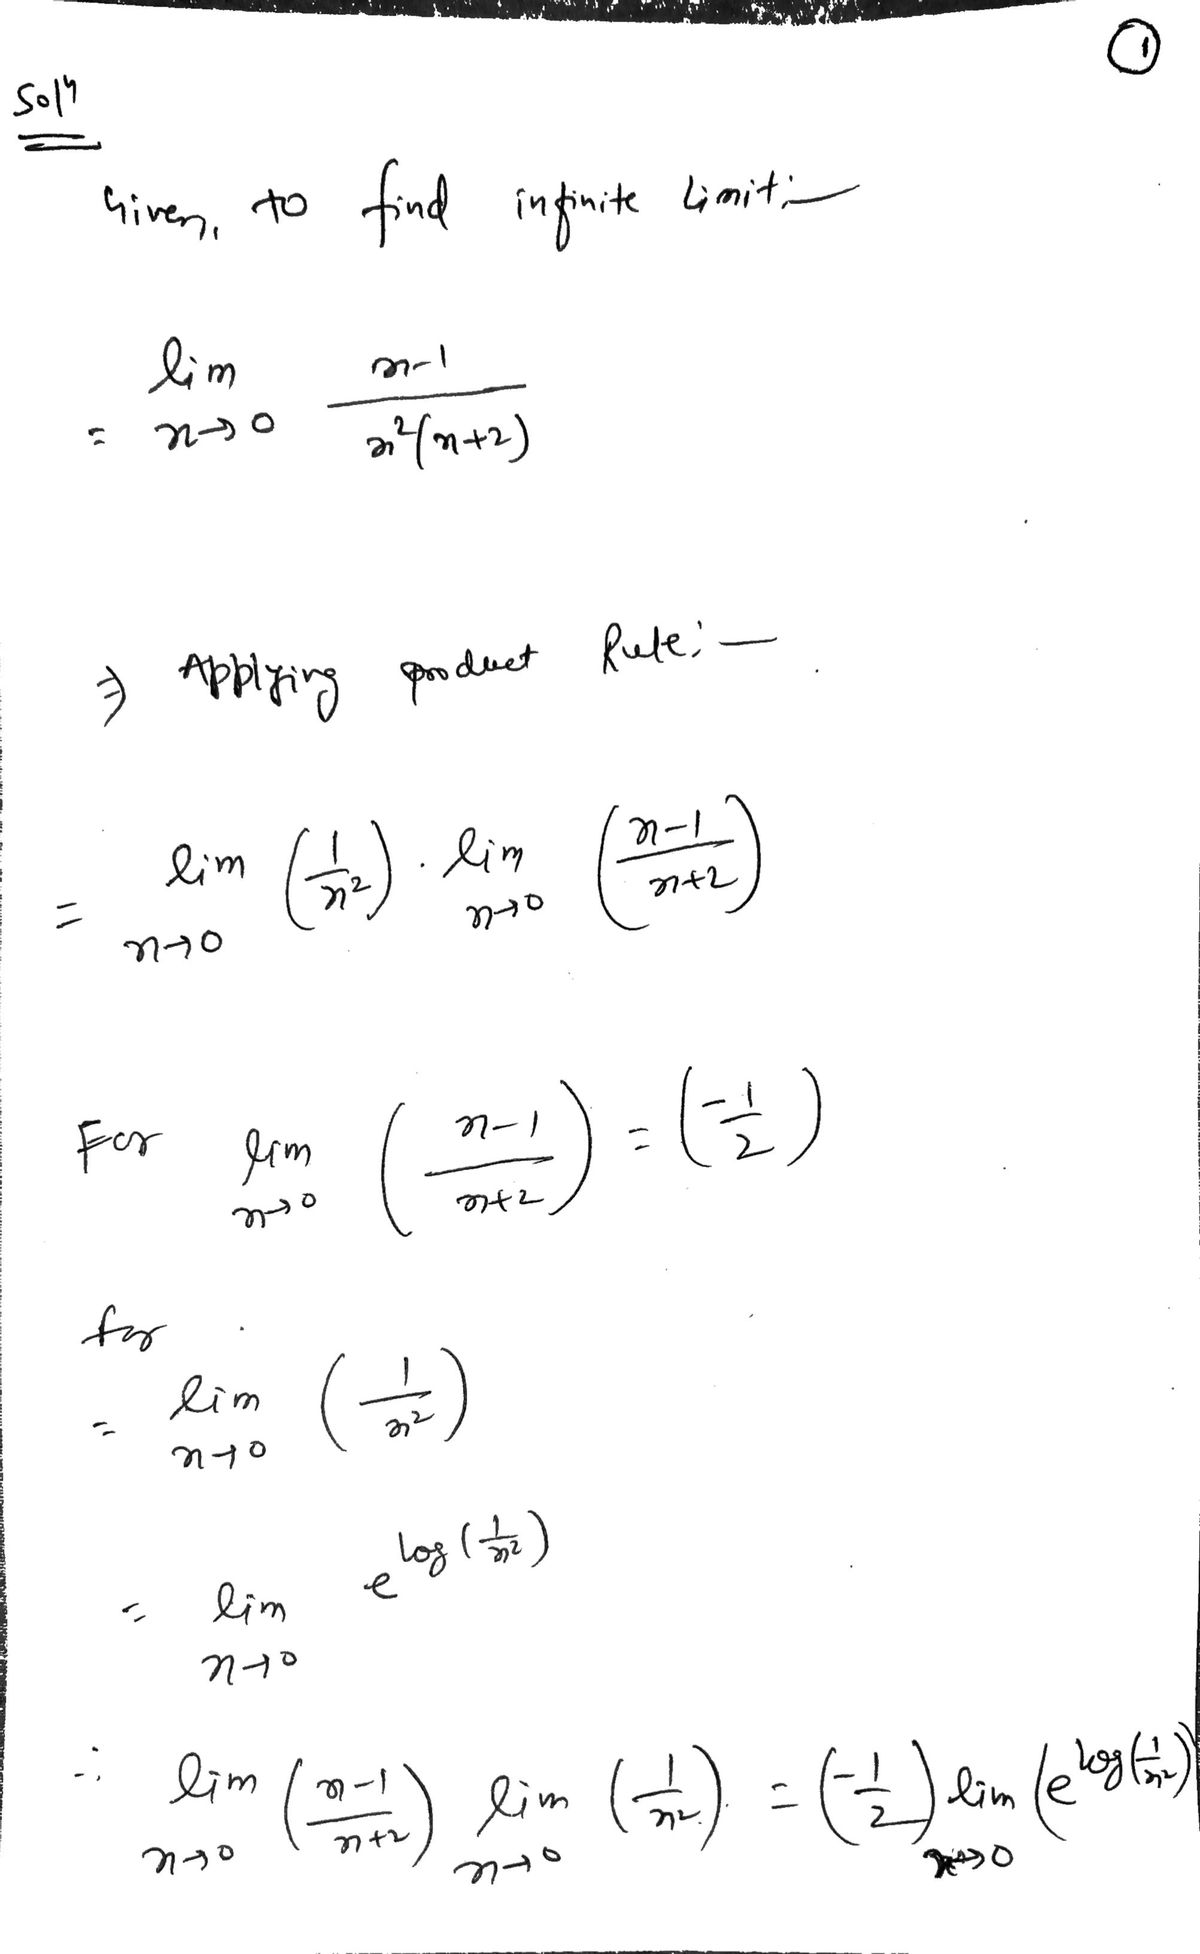 ①
Solⁿ
Given, to find infinite limit:—
= lim n→0 (n-1)/(n²(n+2))
⇒ Applying product Rule:—
= lim n→0 (1/n²) . lim n→0 ((n-1)/(n+2))
For lim n→0 ((n-1)/(n+2)) = (-1/2)
for
= lim n→0 (1/n²)
= lim n→0 e^(log(1/n²))
∴ lim n→0 ((n-1)/(n+2)) lim n→0 (1/n²) = (-1/2) lim n→0 (e^(log(1/n²))